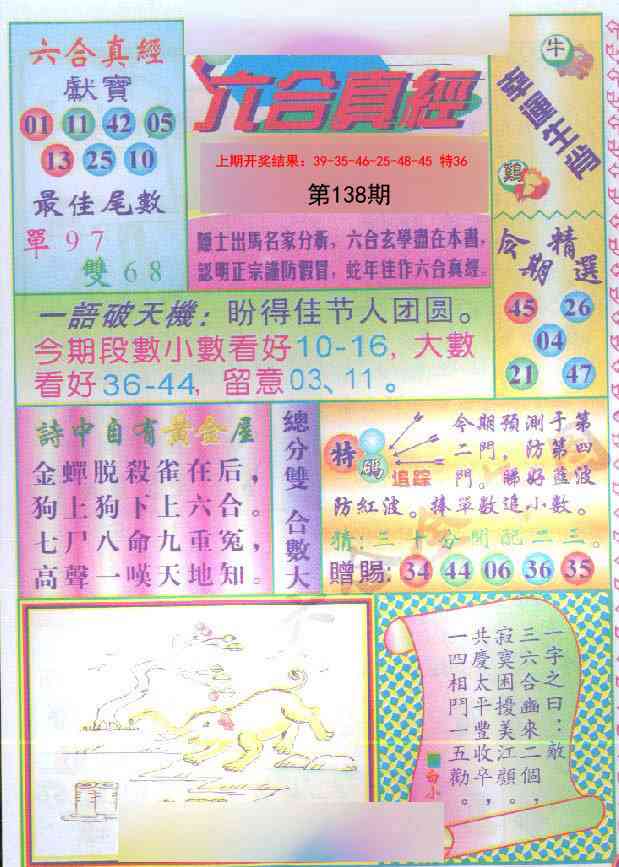 六合真經
獻寶
01 11 42 05
13 25 10
最佳尾數
單 9 7
雙 6 8
六合真經
上期开奖结果：39-35-46-25-48-45 特36
第138期
隱士出馬名家分析，六合玄學盡在本書，
認明正宗謹防假冒，蛇年佳作六合真經。
牛
幸運生肖
鷄
今期精選
45 26
04
21 47
一語破天機：盼得佳节人团圆。
今期段數小數看好10-16，大數
看好36-44，留意03、11。
詩中自有黃金屋
金蟬脱殺雀在后，
狗上狗下上六合。
七尸八命九重冤，
高聲一嘆天地知。
總分雙 合數大
特碼
追踪
今期預測于第
二門，防第四
門。睇好藍波
防紅波。捧單数追小数。
猜：三十分開配二三。
贈賜：34 44 06 36 35
一字之曰：敵
三六合幽來二個，
寂寞困擾美江顧，
共慶太平豐收卒，
一四相門一五勸。
白小